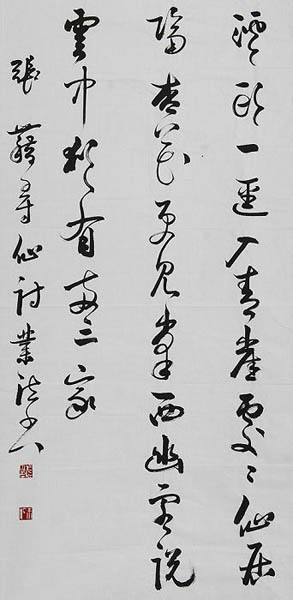 溪頭一逕入青崖處〻仙居
隔杏花更見峯西幽客說
雲中猶有兩三家
張籍尋仙詩